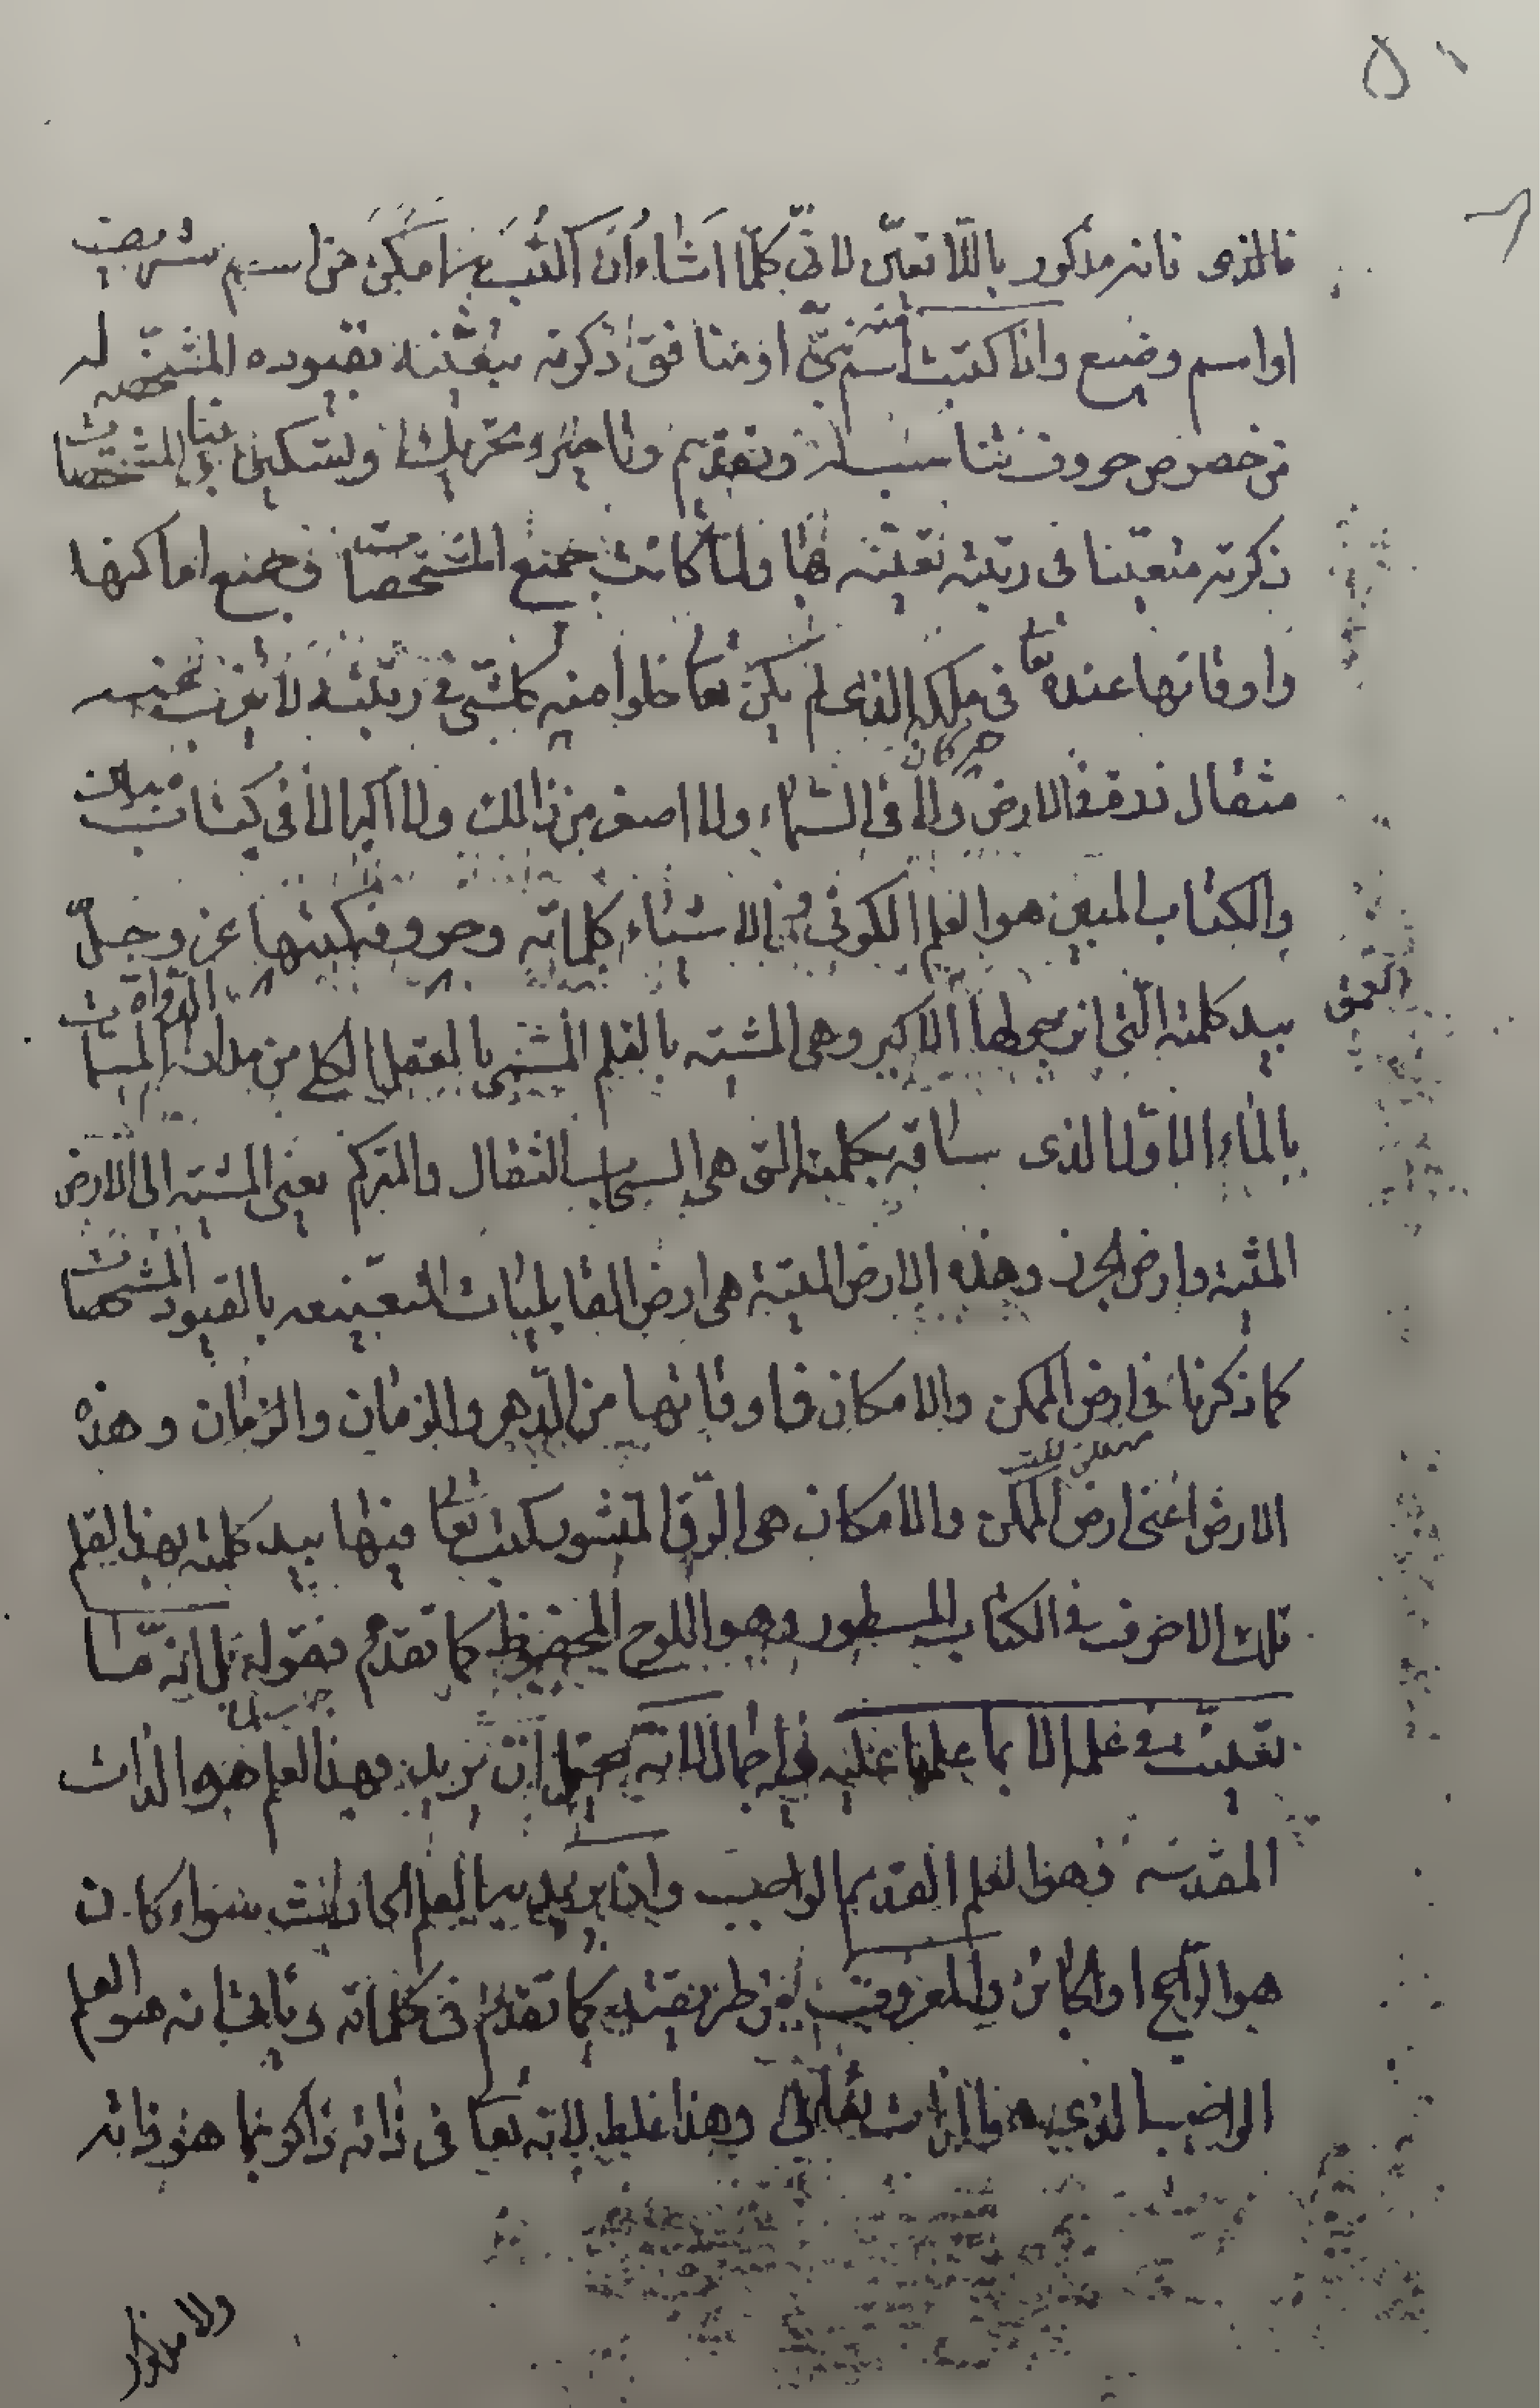 ٥٠
فالذى فانه مذكور باللّا تعيّن لانّى كلّما اشاء ان اكتب بها ممكن من اسم شريف
او اسم وضيع واذا كتبت منه اسم نبىّ او منافق ذكرته بتعيّنه بقيوده المشخّصه له
من خصوص حروف متناسبة وتقديم وتاخير وتحريك وتسكين فبتلك المشخّصات
ذكرته متعيّنا فى رتبة تعيّنه بها ولمّا كانت جميع المشخّصات فى جميع اماكنها
واوقاتها عنده تعا فى ملكه الذى لم يكن تعا خلوا منه كلّ شئ فى رتبته لا يعزب عنه
مثقال ذرة فى الارض ولا فى السّماء ولا اصغر من ذالك ولا اكبر الا فى كتاب مبين
والكتاب المبين هو العلم الكونى والاشياء كلماته وحروفه كتبها عزوجلّ
بيد كلمته الّتى انزجر لها العمق الاكبر وهى المشيّة بالقلم المسمّى بالعقل الكلى من مداد الدّواة المسمّات
بالماء الاوّل الذى ساقه بكلمته التى هى السحاب الثقال والمتراكم يعنى المشيّة الى الارض
الميّتة وارض الجرز وهذه الارض الميّتة هى ارض القابليات المتعيّنه بالقيود المشخصات
كما ذكرنا فى ارض الممكن والامكان فاوقاتها من الدّهر والزمان والزمان وهذه
الارض اعنى ارض الممكن والامكان هى الرّق المنشور كتب تعا فيها بيد كلمته بهذا القلم
تلك الاحرف فى الكتاب المسطور وهو اللوح المحفوظ كما تقدم فقوله بل انه ممّا
تعيّنت فى علمه الا بما علمها عليه فيه اجمال لانّه يحتمل ان يريد بهذا العلم هو الذات
المقدسة فهذا العلم القديم الواجب وان يريد به العلم الحادث سواء كان
هو الرّاجح او الكائن والمعروف من طريقته كما تقدّم فى كلماته وياتى انه هو العلم
الواجب الذى هو الذات تعالى وهذا غلط لانه تعا فى ذاته ذاكر بما هو ذاته
ولا مذكور